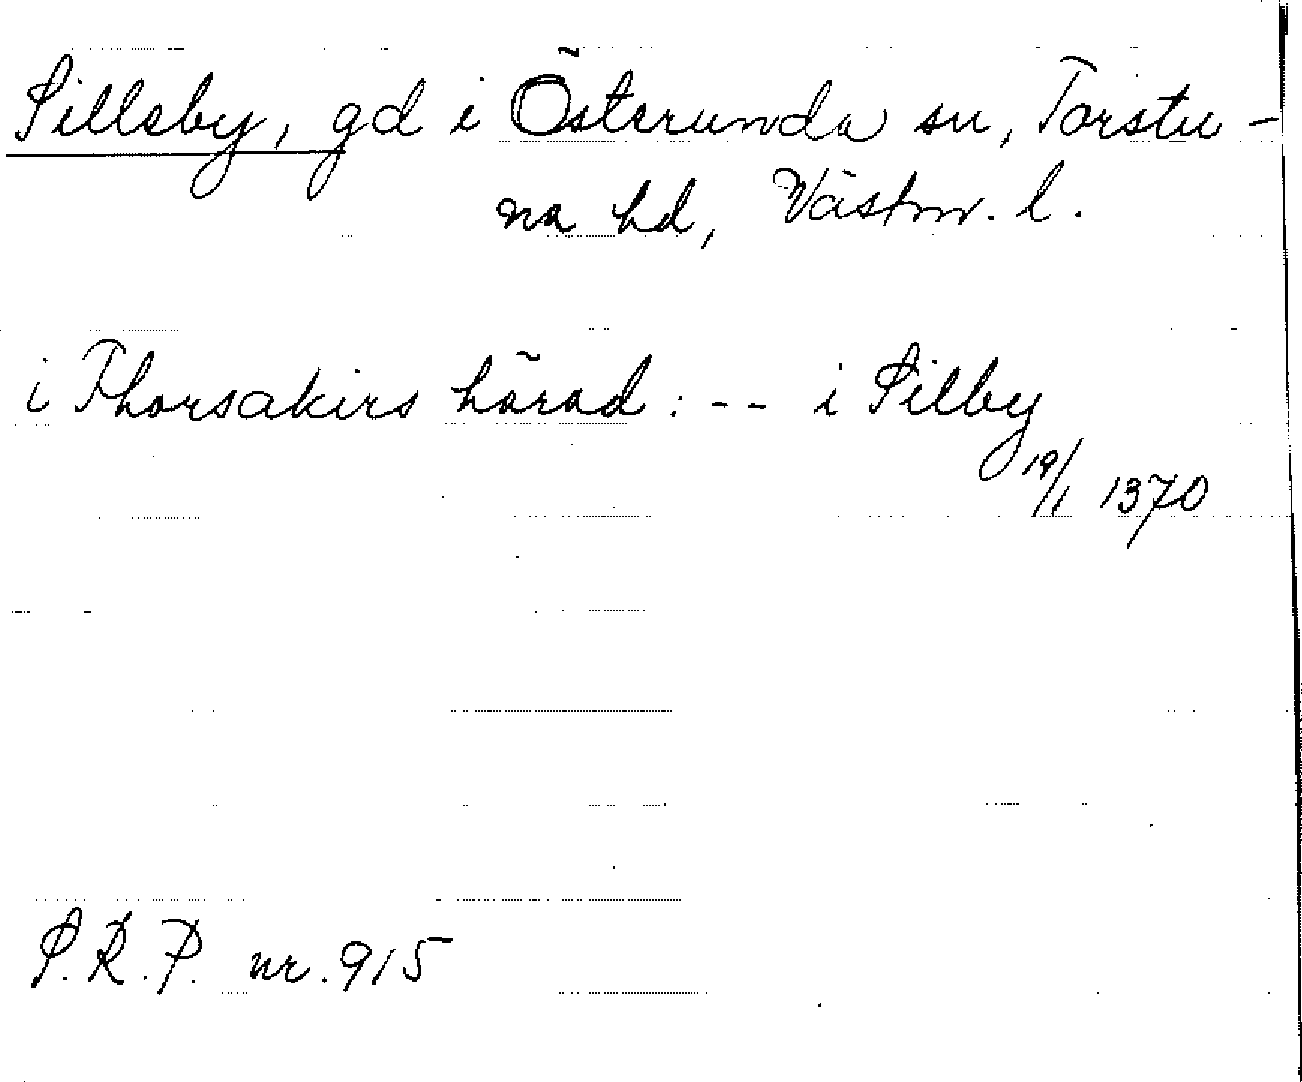 Sillsby, gd i Österunda sn, Torstu-
na hd, Västm. l.
i Thorsakirs härad: -- i Silby
19/1 1370
S.R.P. nr. 915